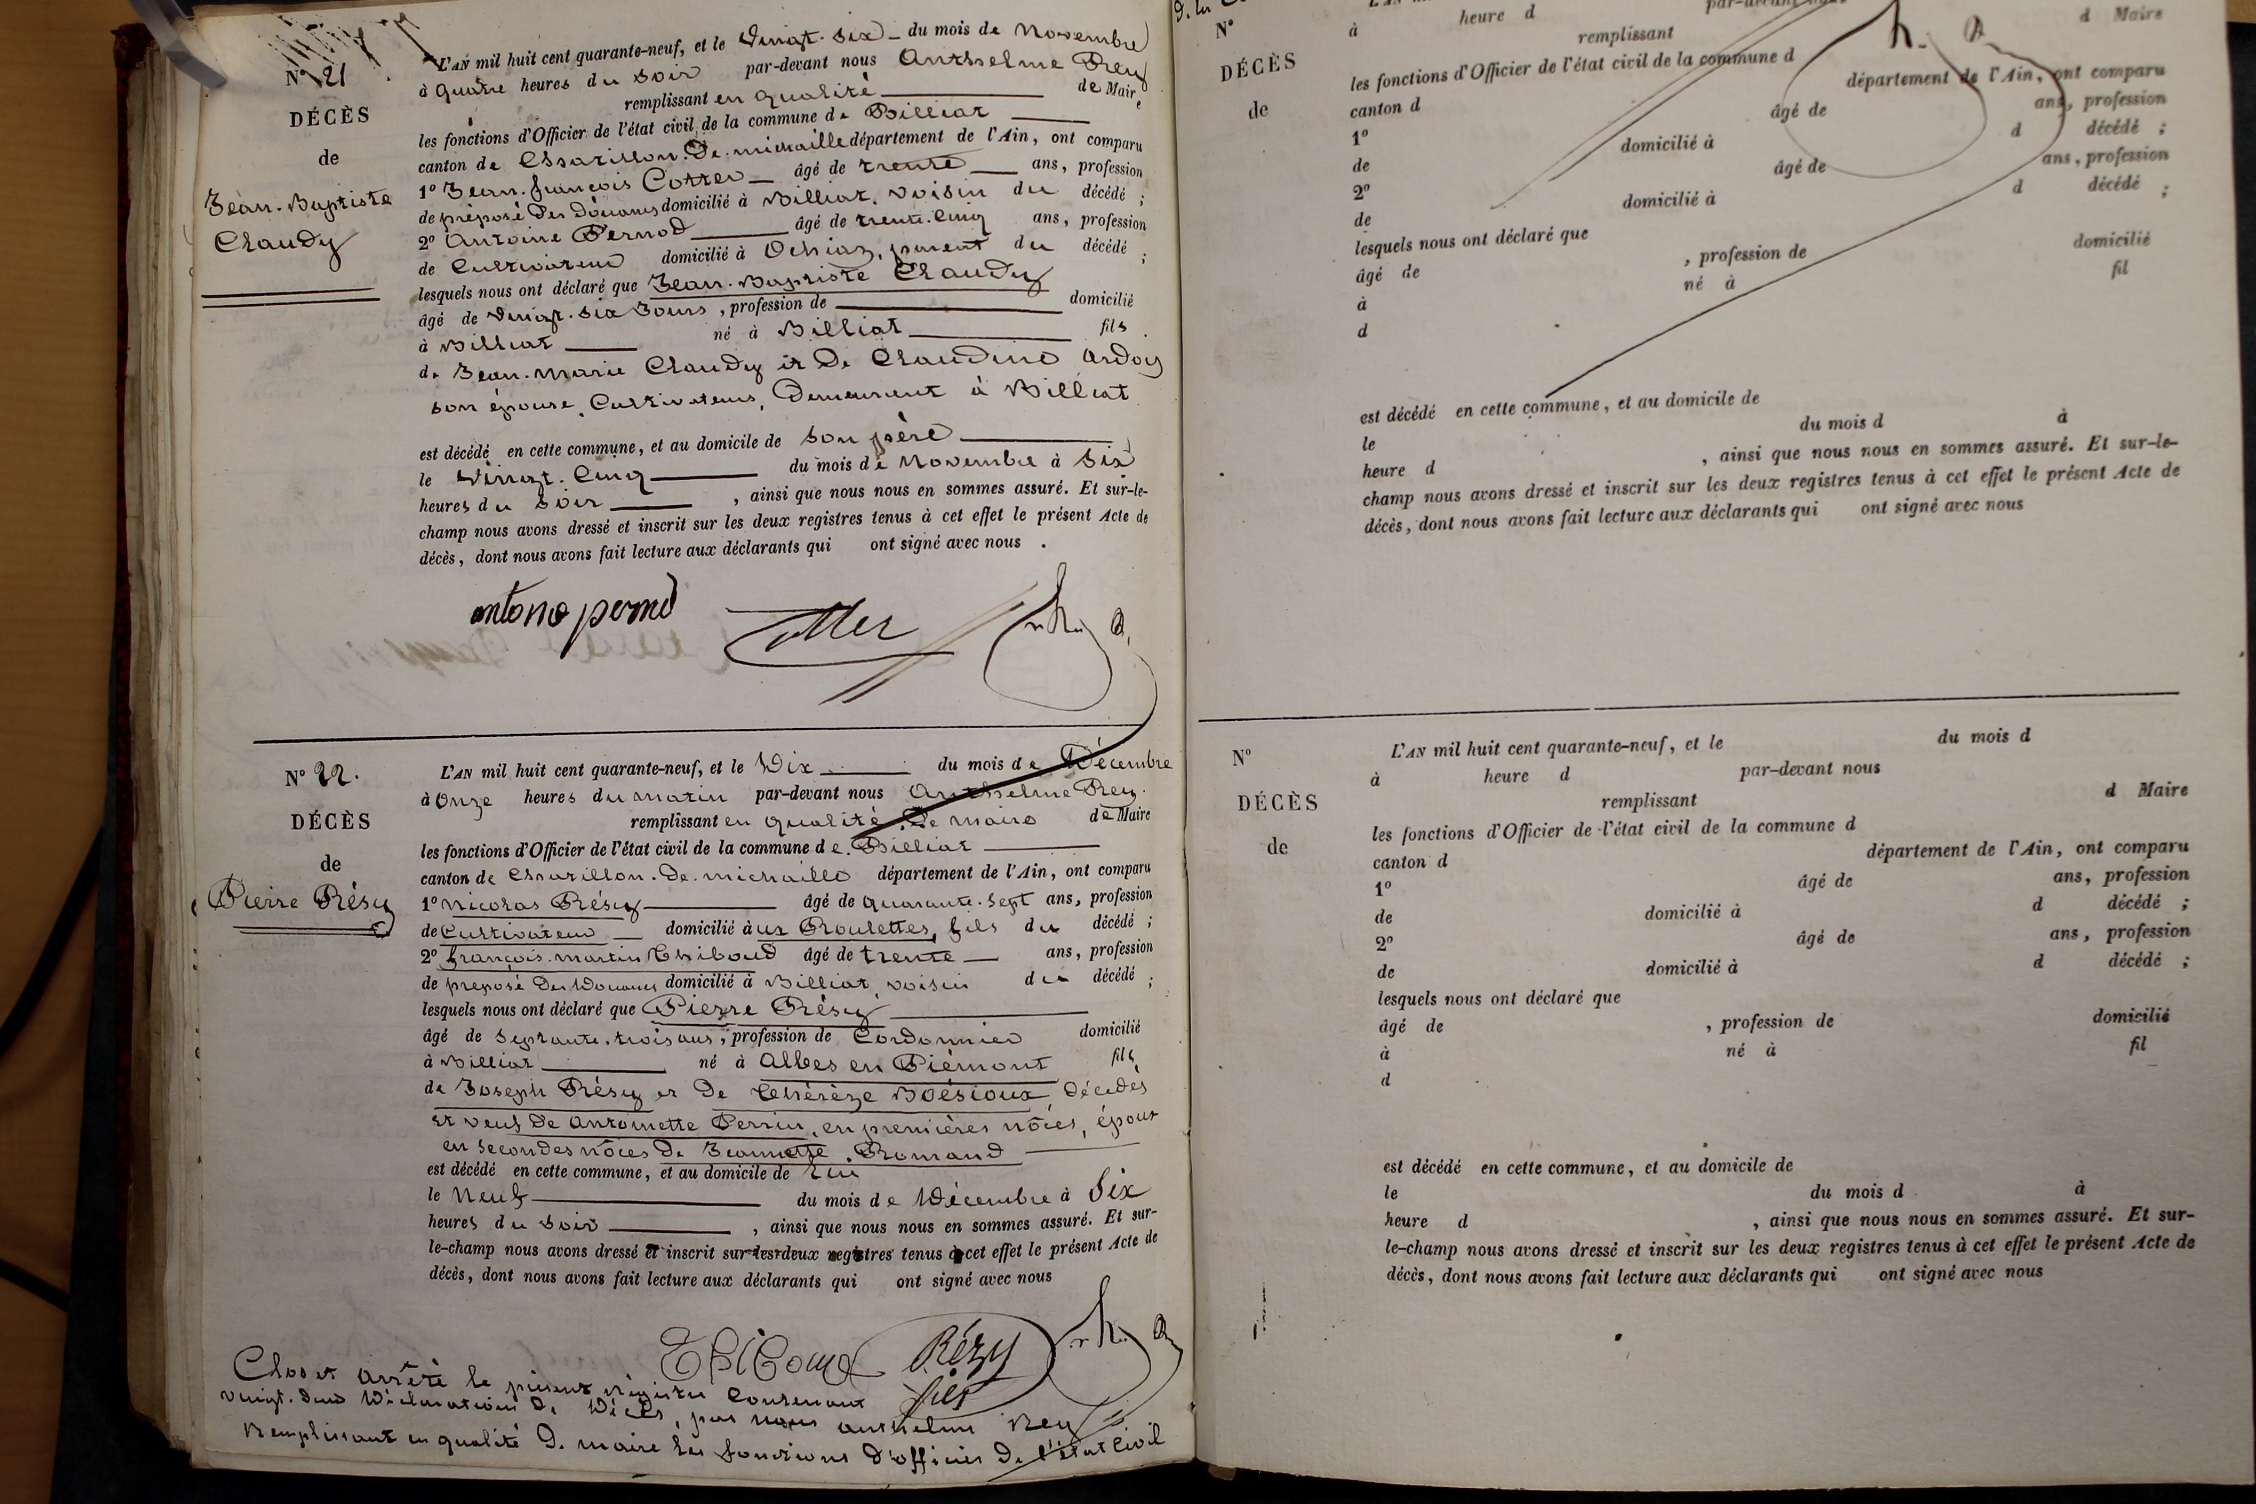 N° 21
DÉCÈS
de
Jean-Baptiste
Chaudy
L'AN mil huit cent quarante-neuf, et le vingt-six du mois de Novembre
à quatre heures du soir par-devant nous Anthelme Rey
remplissant en qualité de Maire
les fonctions d'Officier de l'état civil de la commune de Billiat
canton de Chatillon-de-michaille département de l'Ain, ont comparu
1° Jean-françois Cotter âgé de trente ans, profession
de préposé des Douanes domicilié à Billiat, voisin du décédé ;
2° Antoine Pernod âgé de trente-cinq ans, profession
de Cultivateur domicilié à Ochiaz, parent du décédé ;
lesquels nous ont déclaré que Jean-Baptiste Chaudy
âgé de vingt-six Jours, profession de domicilié
à Billiat né à Billiat fils
de Jean-Marie Chaudy et De Claudine Ardoy
son épouse, Cultivateurs, Demeurant à Billiat
est décédé en cette commune, et au domicile de son père
le vingt-cinq du mois de Novembre à six
heures du soir, ainsi que nous nous en sommes assuré. Et sur-le-
champ nous avons dressé et inscrit sur les deux registres tenus à cet effet le présent Acte de
décès, dont nous avons fait lecture aux déclarants qui ont signé avec nous.
antono pernod Cotter
N° 22.
DÉCÈS
de
Pierre Résy
L'AN mil huit cent quarante-neuf, et le Dix du mois de Décembre
à Onze heures du matin par-devant nous Anthelme Rey
remplissant en qualité De maire de Maire
les fonctions d'Officier de l'état civil de la commune de Billiat
canton de Chatillon-De-michaille département de l'Ain, ont comparu
1° Nicolas Résy âgé de quarante-sept ans, profession
de Cultivateur domicilié à ux Roulettes, fils du décédé ;
2° françois-martin Thiboud âgé de trente ans, profession
de préposé Des Douanes domicilié à Billiat, voisin du décédé ;
lesquels nous ont déclaré que Pierre Résy
âgé de Septante-trois ans, profession de Cordonnier domicilié
à Billiat né à Albes en Piémont fils
de Joseph Résy et De Thérèze Boésioux, Décédés
et veuf De Antoinette Perrin, en premières nôces, époux
en secondes nôces De Jeannette Romand
est décédé en cette commune, et au domicile de lui
le Neuf du mois de Décembre à Six
heures du soir, ainsi que nous nous en sommes assuré. Et sur-
le-champ nous avons dressé et inscrit sur les deux registres tenus à cet effet le présent Acte de
décès, dont nous avons fait lecture aux déclarants qui ont signé avec nous
Thiboud Rézy
fils
Clos et arrêté le présent régistre Contenant
vingt-deux Déclarations De Décès, par nous anthelme Rey
Remplissant en qualité De maire les fonctions d'officier De l'état Civil
N°
DÉCÈS
de
à heure d par-devant nous
remplissant d Maire
les fonctions d'Officier de l'état civil de la commune d
canton d département de l'Ain, ont comparu
1° âgé de ans, profession
de domicilié à d décédé ;
2° âgé de ans, profession
de domicilié à d décédé ;
lesquels nous ont déclaré que
âgé de , profession de domicilié
à né à fil
d
est décédé en cette commune, et au domicile de
le du mois d à
heure d , ainsi que nous nous en sommes assuré. Et sur-le-
champ nous avons dressé et inscrit sur les deux registres tenus à cet effet le présent Acte de
décès, dont nous avons fait lecture aux déclarants qui ont signé avec nous
N°
DÉCÈS
de
L'AN mil huit cent quarante-neuf, et le du mois d
à heure d par-devant nous
remplissant d Maire
les fonctions d'Officier de l'état civil de la commune d
canton d département de l'Ain, ont comparu
1° âgé de ans, profession
de domicilié à d décédé ;
2° âgé de ans, profession
de domicilié à d décédé ;
lesquels nous ont déclaré que
âgé de , profession de domicilié
à né à fil
d
est décédé en cette commune, et au domicile de
le du mois d à
heure d , ainsi que nous nous en sommes assuré. Et sur-
le-champ nous avons dressé et inscrit sur les deux registres tenus à cet effet le présent Acte de
décès, dont nous avons fait lecture aux déclarants qui ont signé avec nous